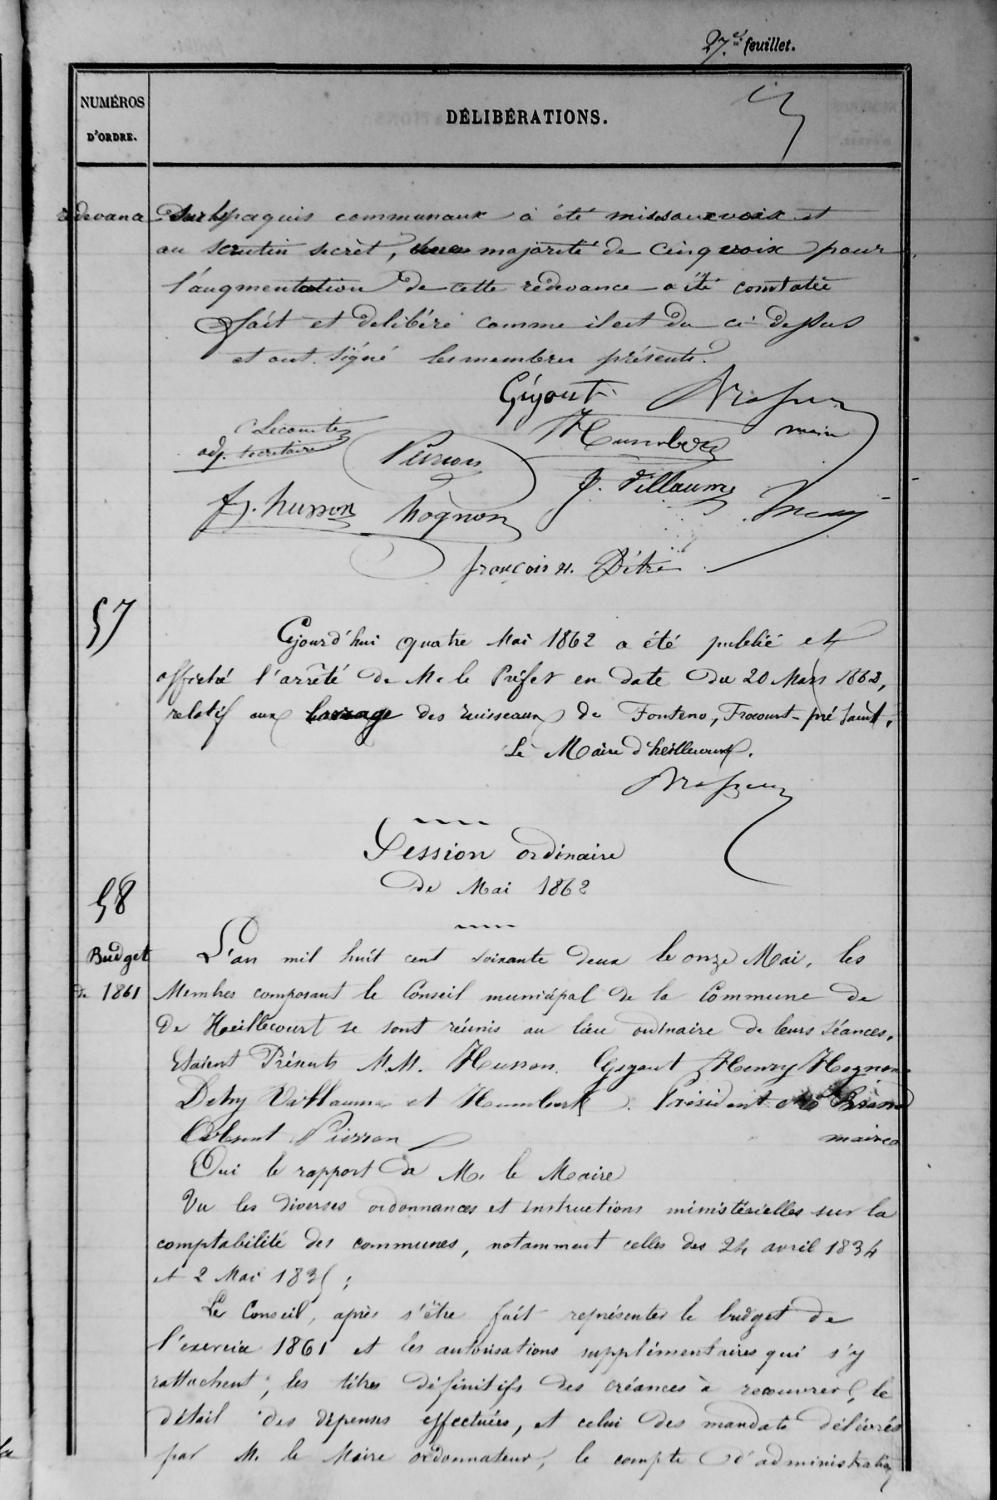 27.e feuillet.
NUMÉROS D'ORDRE.
DÉLIBÉRATIONS.
redevance sur les paquis communaux a été mis aux voix et
au scrutin sècrèt, une majorité de cinq voix pour
l'augmentation de cette redevance a été constatée
fait et délibéré comme il est du ci dessus
et ont signé les membres présents.
Gigout
C Lecomte
adj. secretaire
Humbert
maire
Pierron
J. Villaume
J. husson
hognon
françois H. Détré
57
Cejourd'hui quatre Mai 1862 a été publié et
affiché l'arrêté de M. le Préfet en date du 20 Mars 1862,
relatif aux des ruisseaux de Fonteno, Frocourt - pré saint.
Le Maire d'heillecourt.
Session ordinaire
de Mai 1862
58
Budget
de 1861
L'an mil huit cent soixante deux le onze Mai, les
Membres composant le Conseil municipal de la Commune de
de Heillecourt se sont réunis au lieu ordinaire de leurs séances.
Etaient Présents M.M. Husson, Gigout, Henry Hognon
Detry Villaume et Humbert. Président
maire
Absent Pierron
Oui le rapport de M. le Maire
Vu les diverses ordonnances et instructions ministérielles sur la
comptabilité des communes, notamment celles des 24 avril 1834
et 2 Mai 1835;
Le Conseil, après s'être fait représenter le budget de
l'exercice 1861 et les autorisations supplémentaires qui s'y
rattachent; les titres définitifs des créances à recouvrer, le
détail des dépenses effectuées, et celui des mandats délivrés
par M. le Maire ordonnateur, le compte d'administration